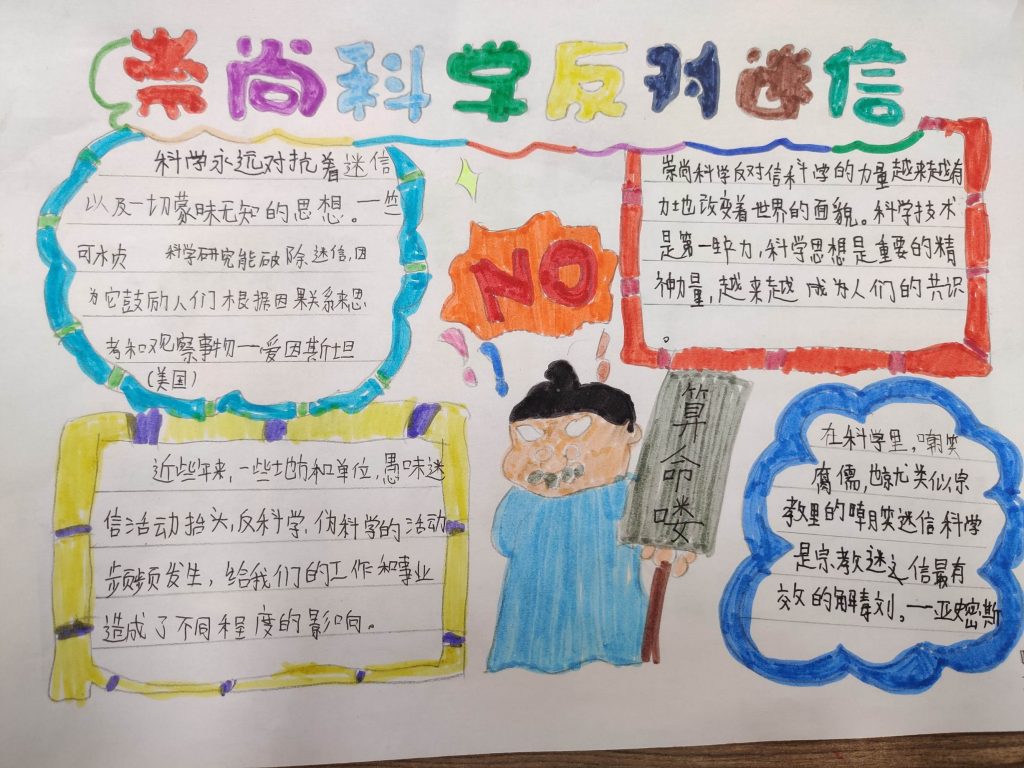 崇尚科学反对迷信
科学永远对抗着迷信
以及一切蒙昧无知的思想。一竺
可木贞 科学研究能破除迷信,因
为它鼓励人们根据因果联系来思
考和观察事物一爱因斯坦
(美国)
崇尚科学反对信科学的力量越来越有
力地改变着世界的面貌。科学技术
是第一生产力,科学思想是重要的精
神力量,越来越 成为人们的共识
。
NO
算命喽
近些年来,一些地方和单位,愚味迷
信活动抬头,反科学,伪科学的活动
频频发生,给我们的工作和事业
造成了不同程度的影响。
在科学里,嘲笑
腐儒,也就类似宗
教里的嘲笑迷信科学
是宗教迷之信最有
效的解毒剂。——亚史密斯